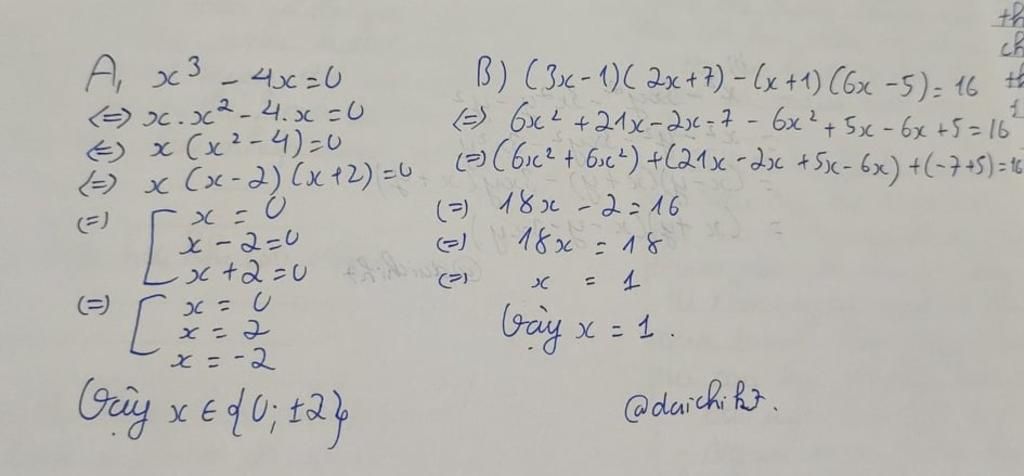 A, x³ - 4x = 0
<=> x.x² - 4.x = 0
<=> x (x² - 4) = 0
<=> x (x - 2) (x + 2) = 0
(=) [ x = 0
x - 2 = 0
x + 2 = 0
(=) [ x = 0
x = 2
x = -2
Vậy x ∈ {0; ±2}
B) (3x - 1)(2x + 7) - (x + 1)(6x - 5) = 16
<=> 6x² + 21x - 2x - 7 - 6x² + 5x - 6x + 5 = 16
(=) (6x² + 6x²) + (21x - 2x + 5x - 6x) + (-7 + 5) = 16
(=) 18x - 2 = 16
(=) 18x = 18
(=) x = 1
Vậy x = 1.
@daichik7.
th
ch
th
1